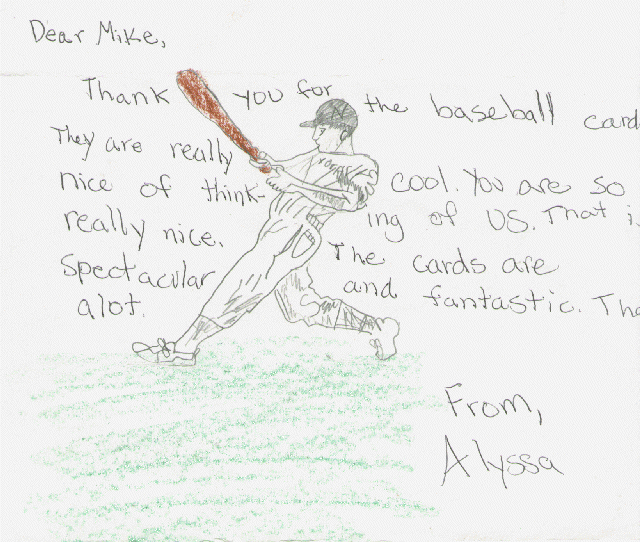 Dear Mike,
Thank you for the baseball card
They are really cool. You are so
nice of think-ing of us. That i
really nice. The cards are
spectacular and fantastic. Tha
alot.
From,
Alyssa